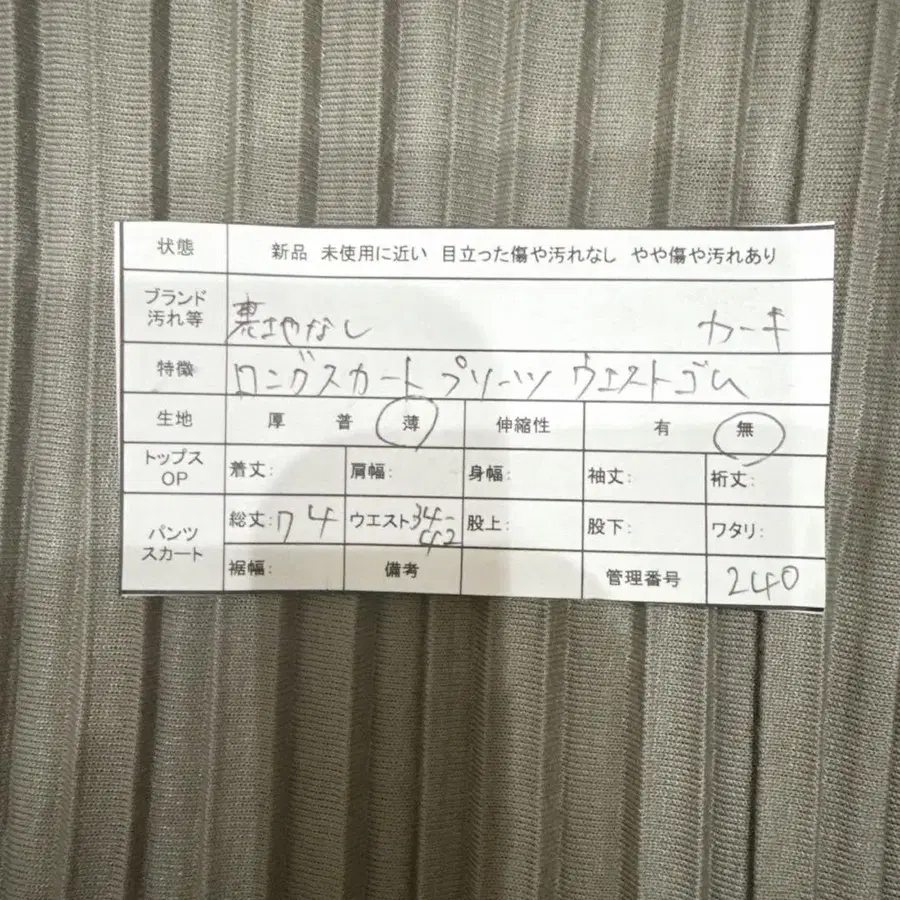 状態 新品 未使用に近い 目立った傷や汚れなし やや傷や汚れあり
ブランド
汚れ等 裏地なし カーキ
特徴 ロングスカート プリーツ ウエストゴム
生地 厚 普 薄 伸縮性 有 無
トップス
OP 着丈: 肩幅: 身幅: 袖丈: 裄丈:
パンツ
スカート 総丈:74 ウエスト34-
42 股上: 股下: ワタリ:
裾幅: 備考 管理番号 240